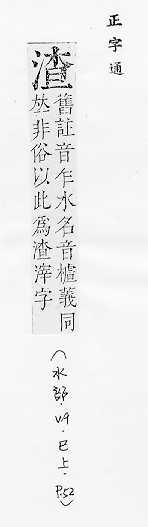 正字通
渣
舊註音乍水名音樝義同
𡘋非俗以此爲渣滓字
（水部．v.9．巳上．P.52）